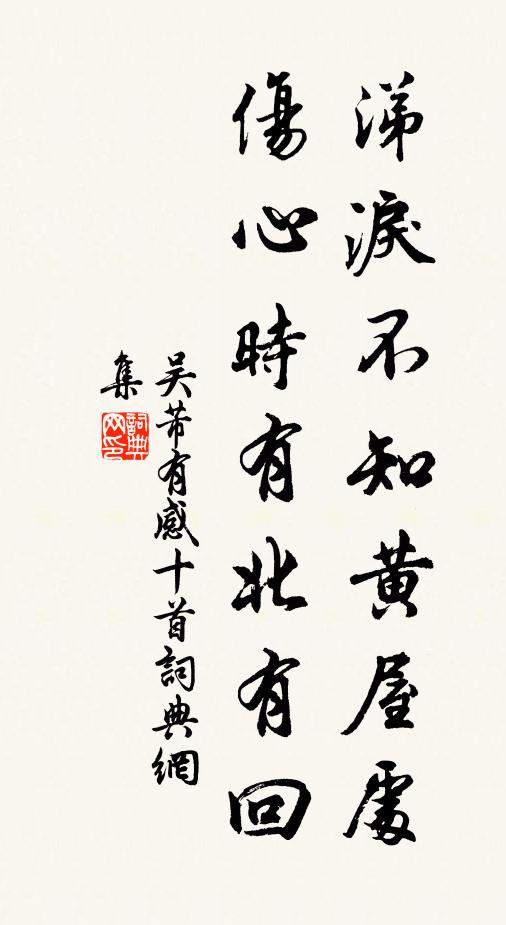 涕淚不知黃屋處
傷心時有北有回
吴芾有感十首詞典網
集
詞典网印